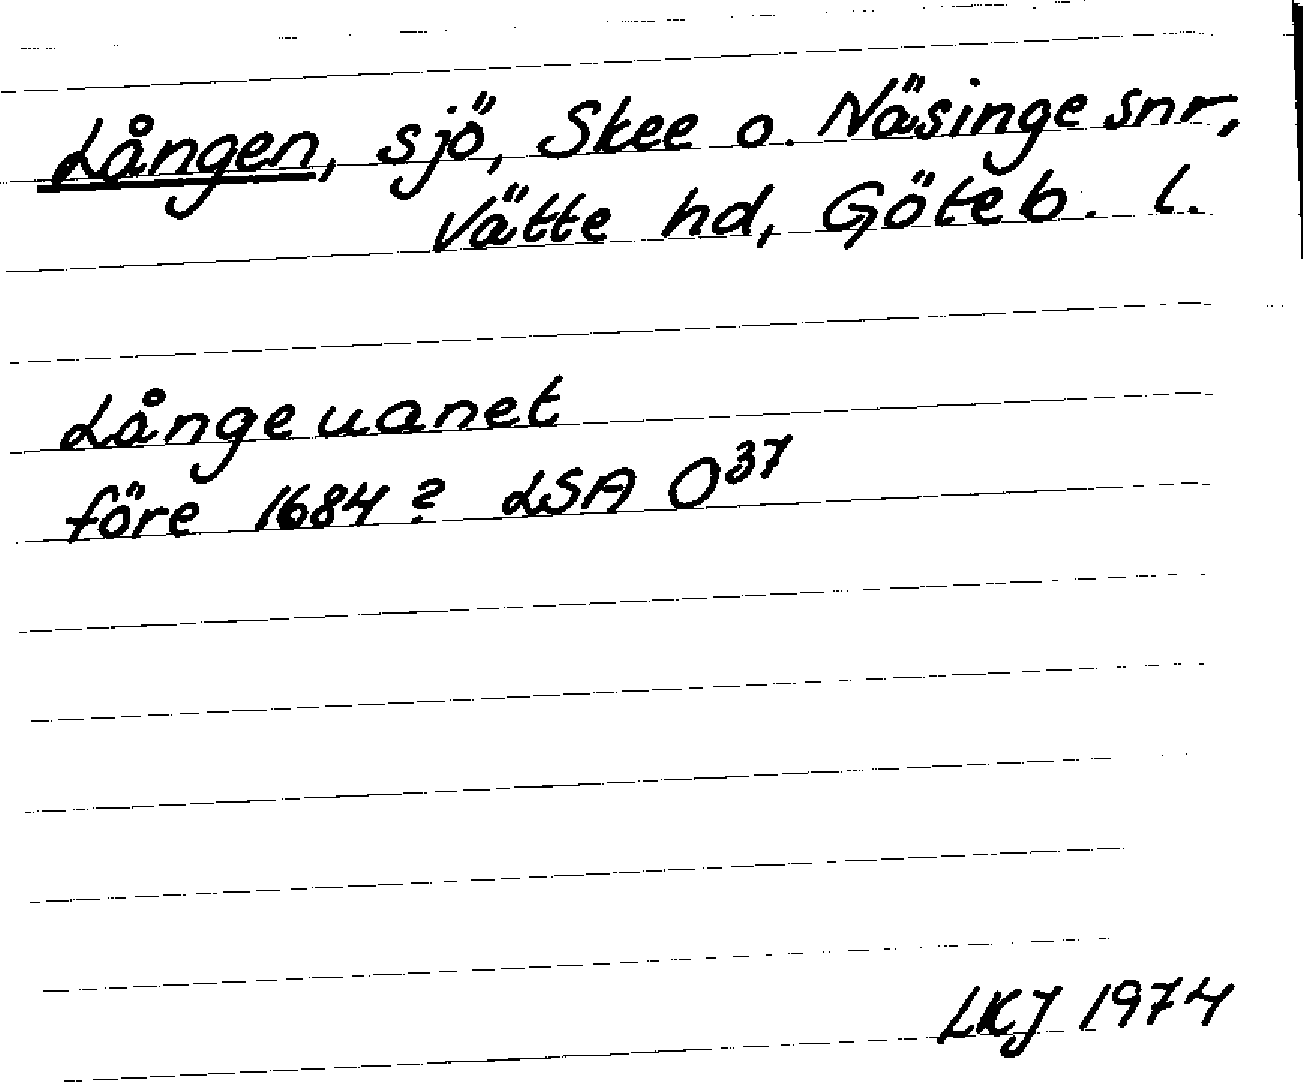 Lången, sjö, Skee o. Näsinge snr,
Vätte hd, Göteb. l.
Långeuanet
före 1684? LSA O37
LKJ 1974